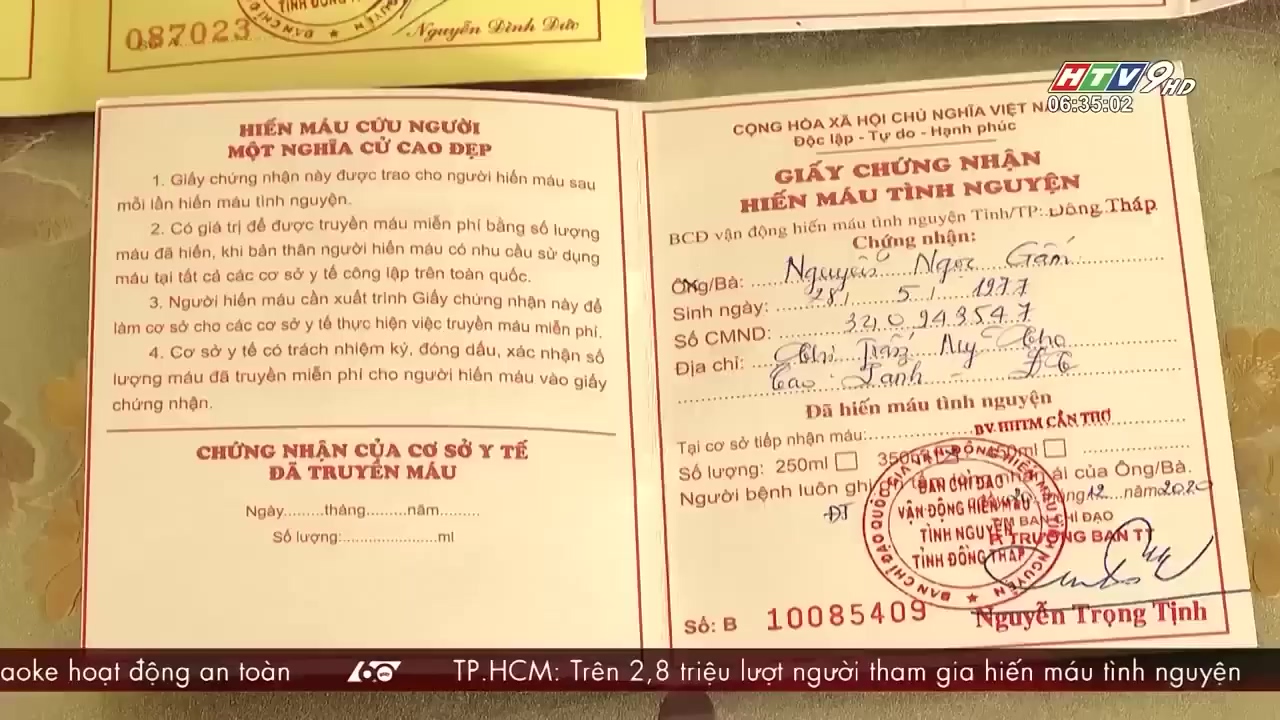 087023
Nguyễn Đình Đức
HTV9 HD
06:35:02
HIẾN MÁU CỨU NGƯỜI
MỘT NGHĨA CỬ CAO ĐẸP
1. Giấy chứng nhận này được trao cho người hiến máu sau
mỗi lần hiến máu tình nguyện.
2. Có giá trị để được truyền máu miễn phí bằng số lượng
máu đã hiến, khi bản thân người hiến máu có nhu cầu sử dụng
máu tại tất cả các cơ sở y tế công lập trên toàn quốc.
3. Người hiến máu cần xuất trình Giấy chứng nhận này để
làm cơ sở cho các cơ sở y tế thực hiện việc truyền máu miễn phí.
4. Cơ sở y tế có trách nhiệm ký, đóng dấu, xác nhận số
lượng máu đã truyền miễn phí cho người hiến máu vào giấy
chứng nhận.
CHỨNG NHẬN CỦA CƠ SỞ Y TẾ
ĐÃ TRUYỀN MÁU
Ngày.........tháng.........năm.........
Số lượng:......................ml
CỘNG HÒA XÃ HỘI CHỦ NGHĨA VIỆT NA
Độc lập - Tự do - Hạnh phúc
GIẤY CHỨNG NHẬN
HIẾN MÁU TÌNH NGUYỆN
BCĐ vận động hiến máu tình nguyện Tỉnh/TP: Đồng Tháp
Chứng nhận:
Ông/Bà: Nguyễn Ngọc Gấm
Sinh ngày: 28 / 5 / 1977
Số CMND: 320943547
Địa chỉ: Trấn Mỹ Thọ
Cao Lãnh - ĐT
Đã hiến máu tình nguyện
Tại cơ sở tiếp nhận máu: BV. HHTM CẦN THƠ
Số lượng: 250ml 350ml 450ml
Người bệnh luôn ghi nhân ái của Ông/Bà.
ĐT tháng 12 năm 2020
TM BAN CHỈ ĐẠO
P. TRƯỞNG BAN TT
BAN CHỈ ĐẠO
VẬN ĐỘNG HIẾN MÁU
TÌNH NGUYỆN
TỈNH ĐỒNG THÁP
Nguyễn Trọng Tịnh
Số: B 10085409
aoke hoạt động an toàn
60 TP.HCM: Trên 2,8 triệu lượt người tham gia hiến máu tình nguyện